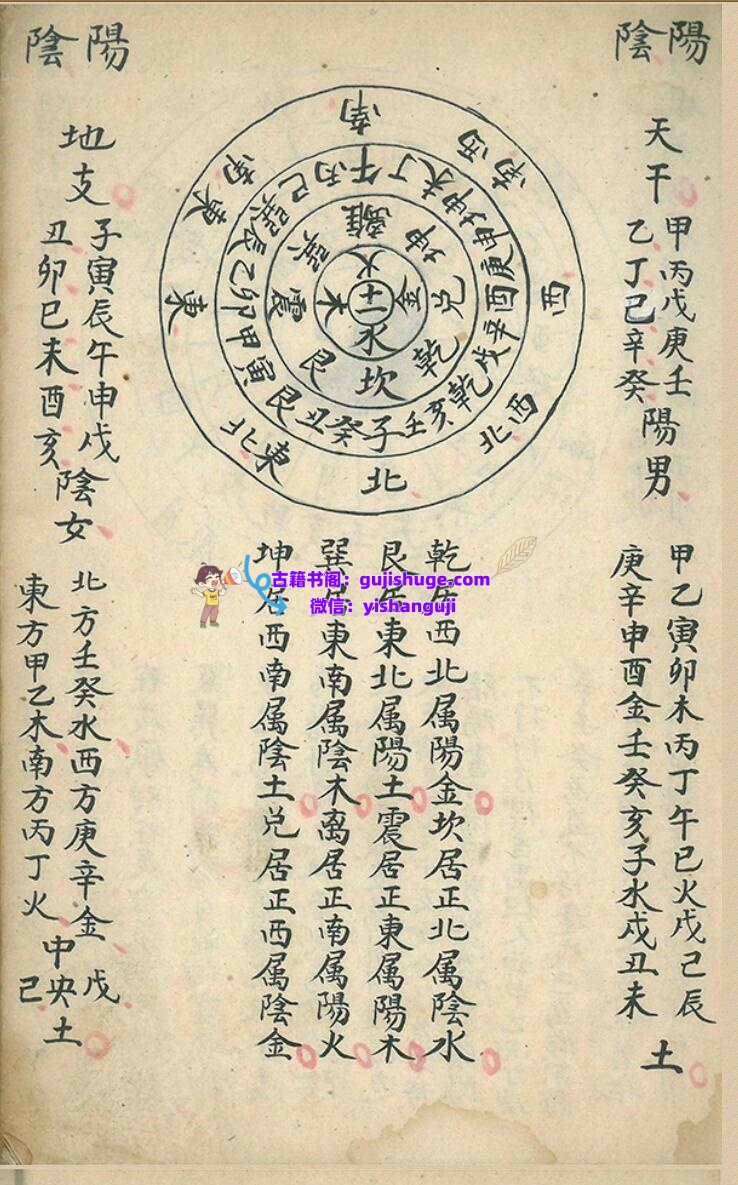 陽陰
天干
甲丙戊庚壬
乙丁己辛癸
陽男
甲乙寅卯木丙丁午巳火戊己辰
庚辛申酉金壬癸亥子水戌丑未
土
南 西南 西 西北 北 東北 東 東南
午丁未坤申庚酉辛戌乾亥壬子癸丑艮寅甲卯乙辰巽巳丙
離坤兌乾坎艮震巽
火金水木
乾居西北属陽金坎居正北属陰水
艮居東北属陽土震居正東属陽木
巽居東南属陰木离居正南属陽火
坤居西南属陰土兑居正西属陰金
古籍书阁：gujishuge.com
微信：yishanguji
陽陰
地支
子寅辰午申戌
丑卯巳未酉亥
陰女
北方壬癸水西方庚辛金
東方甲乙木南方丙丁火
中央戊己土